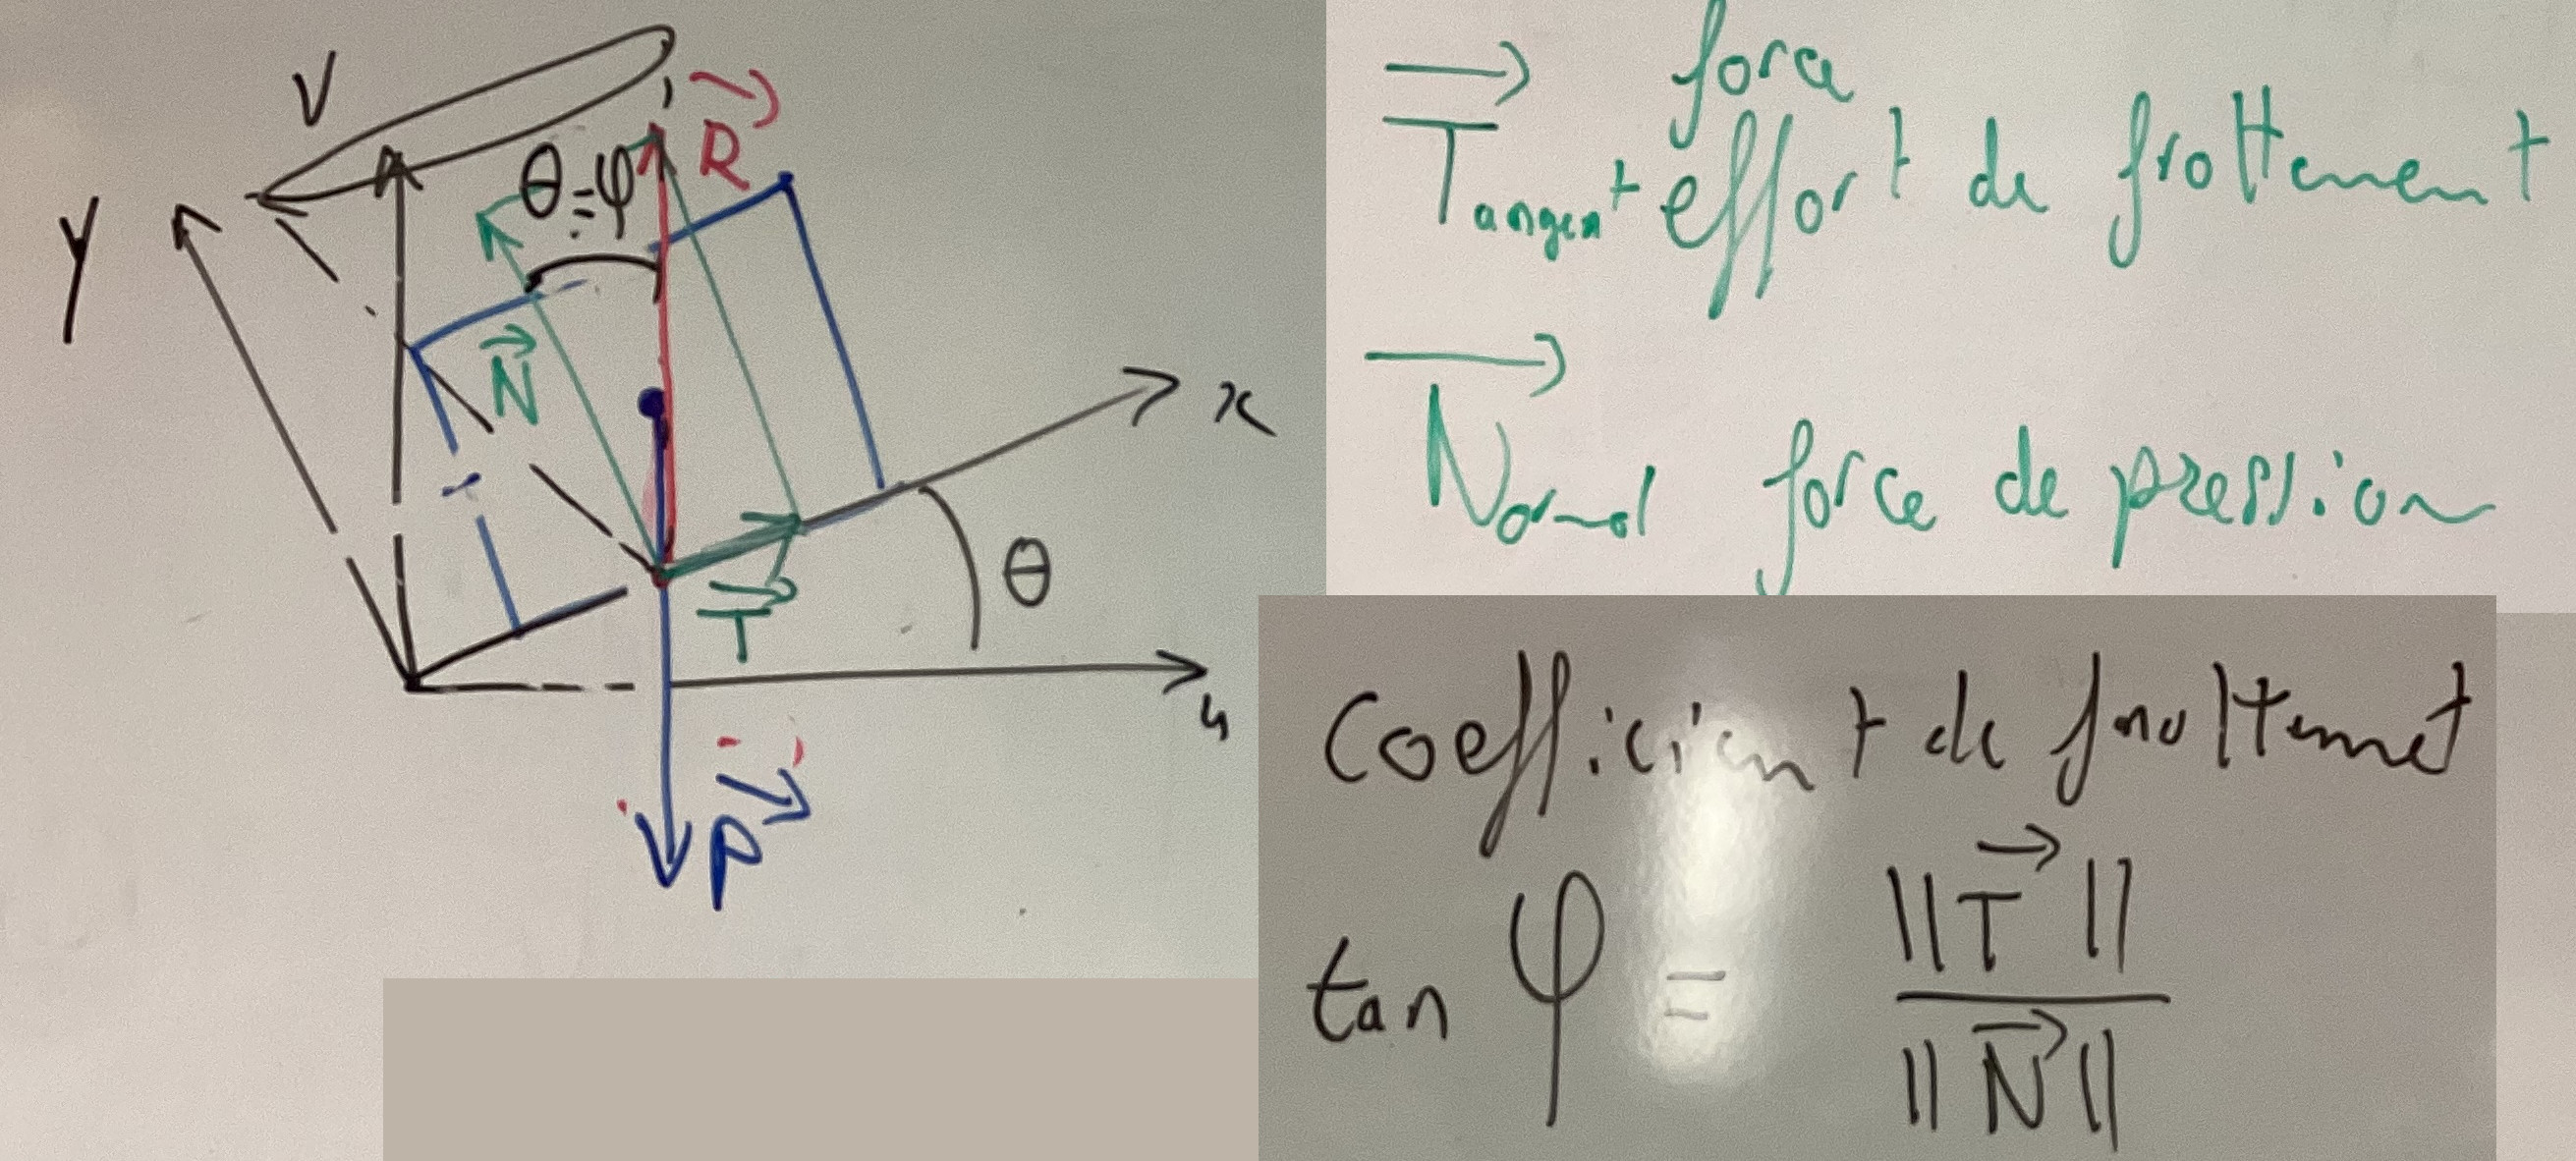 V
y
θ = φ
R
N
x
θ
T
u
P
force
Tangent effort de frottement
Normal force de pression
Coefficient de frottemet
tan φ = ||T|| / ||N||